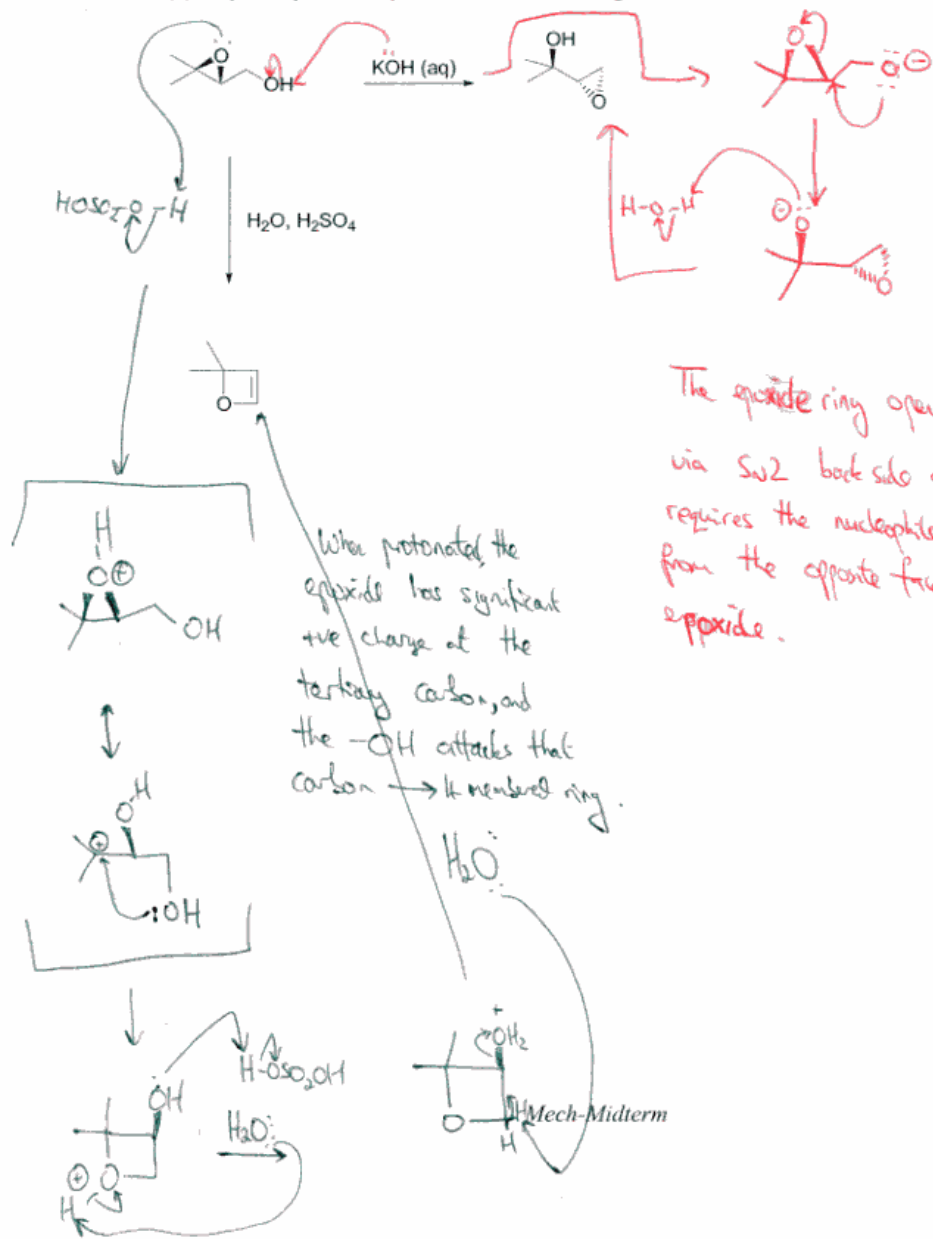 O
OH
KOH (aq)
OH
O
O
O
HOSO2-O-H
H2O, H2SO4
H-O-H
O
O
O
The epoxide ring
via SN2 back side
requires the nucleophile
from the opposite
epoxide.
H
O
OH
When protonated, the
epoxide has significant
+ve charge at the
tertiary carbon, and
the -OH attacks that
carbon → 4 membered ring.
H
O
OH
H2O
OH
H-OSO2OH
H2O
O
H
+
OH2
O
H
H
Mech-Midterm